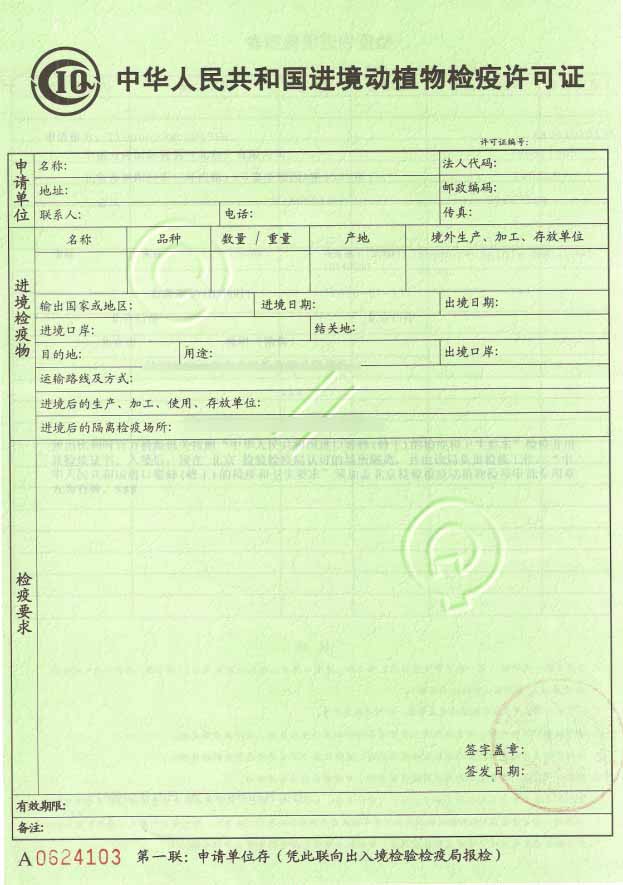 CIQ 中华人民共和国进境动植物检疫许可证
许可证编号:
申请单位
名称: 法人代码:
地址: 邮政编码:
联系人: 电话: 传真:
进境检疫物
名称 品种 数量 / 重量 产地 境外生产、加工、存放单位
输出国家或地区: 进境日期: 出境日期:
进境口岸: 结关地:
目的地: 用途: 出境口岸:
运输路线及方式:
进境后的生产、加工、使用、存放单位:
进境后的隔离检疫场所:
检疫要求
签字盖章:
签发日期:
有效期限:
备注:
A0624103 第一联: 申请单位存 (凭此联向出入境检验检疫局报检)